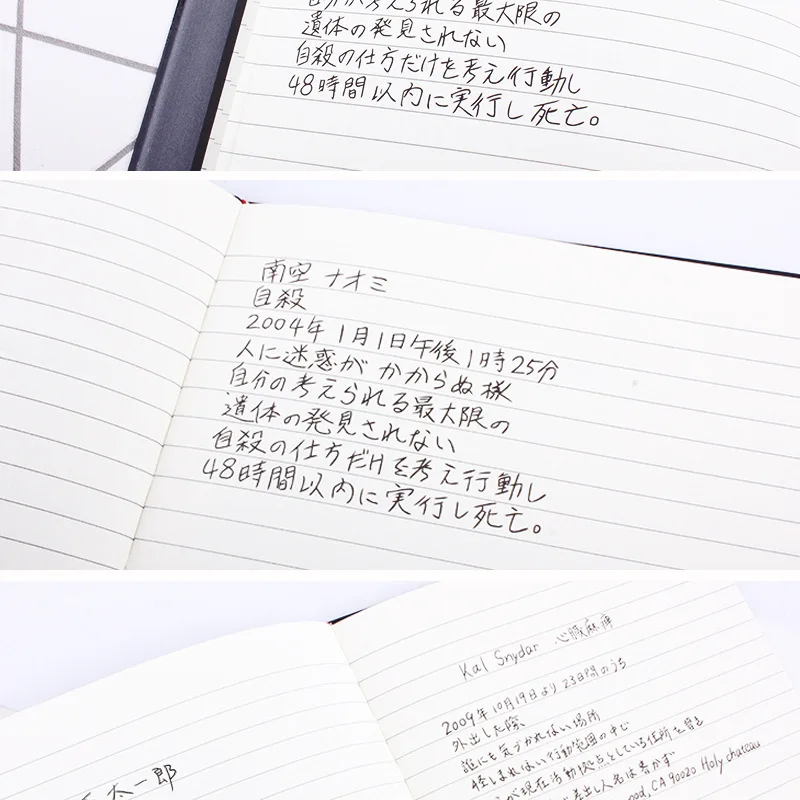 自分が考えられる最大限の
遺体の発見されない
自殺の仕方だけを考え行動し
48時間以内に実行し死亡。
南空 ナオミ
自殺
2004年1月1日午後1時25分
人に迷惑がかからぬ様
自分の考えられる最大限の
遺体の発見されない
自殺の仕方だけを考え行動し
48時間以内に実行し死亡。
太一郎
Kal Snydar 心臓麻痺
2009年10月19日より23日間のうち
外出した際、
誰にも気づかれない場所
怪しまれない行動範囲の中で
が現在活動拠点としている住所を書き
差出人名は書かず
ood, CA 90020 Holy chateau